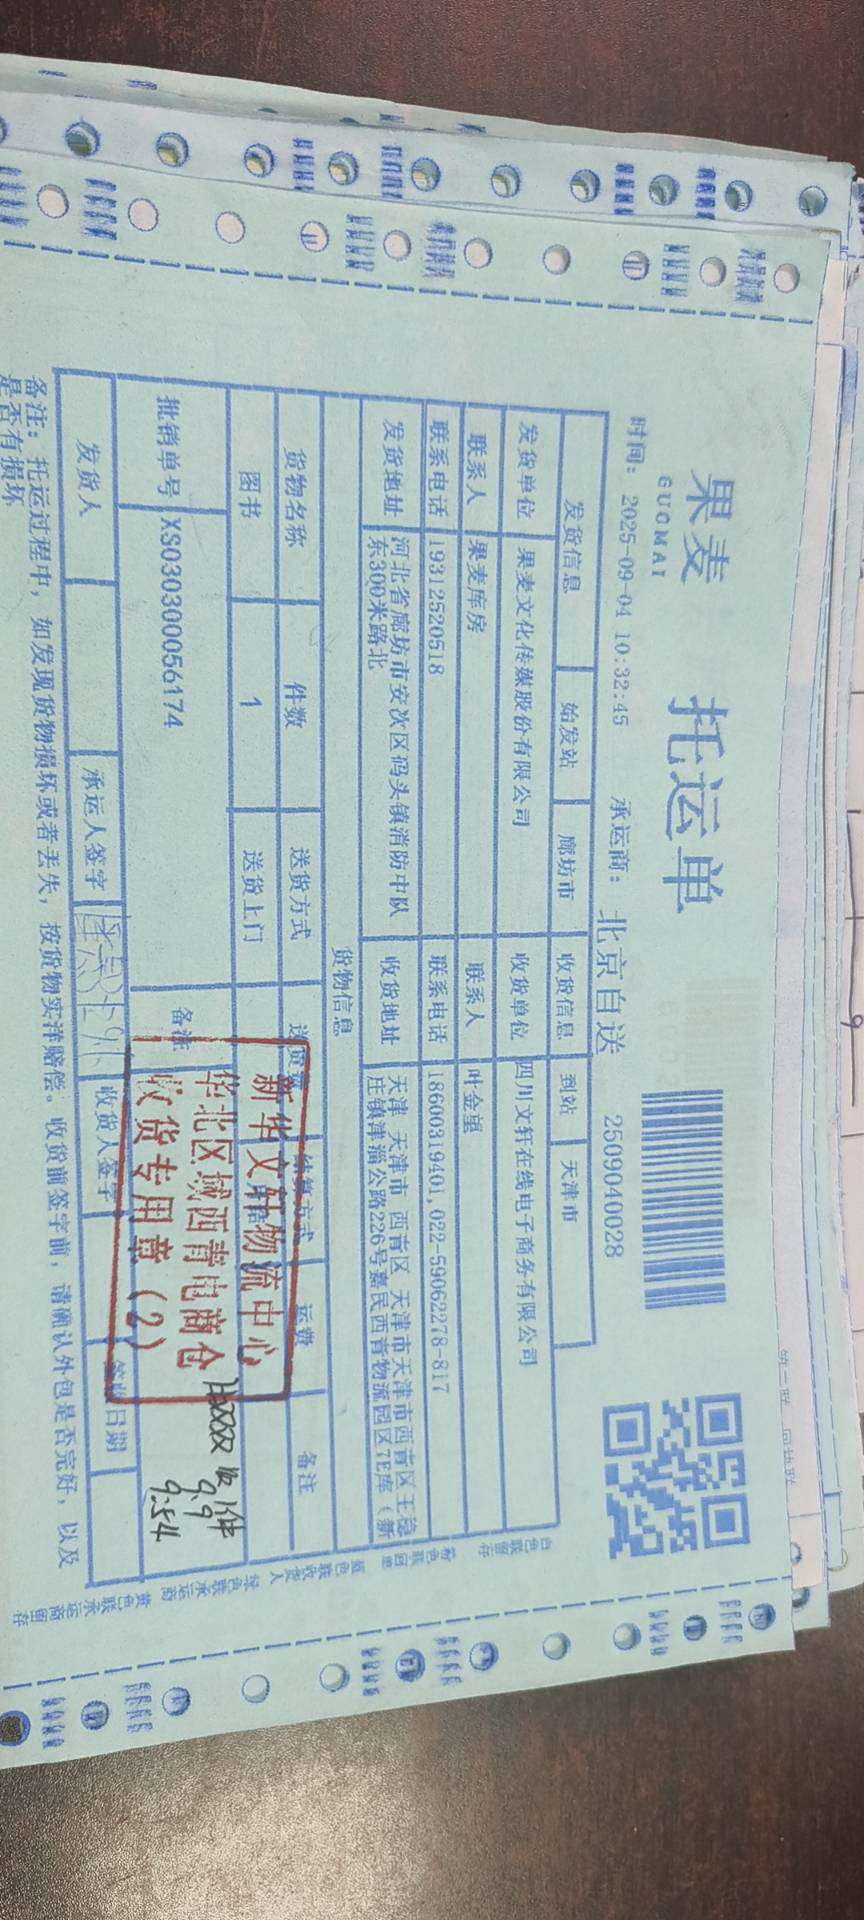 果麦 托运单
GUOMAI
时间: 2025-09-04 10:32:45 承运商: 北京自送 2509040028
发货信息 始发站 廊坊市 收货信息 到站 天津市
发货单位 果麦文化传媒股份有限公司 收货单位 四川文轩在线电子商务有限公司
联系人 果麦库房 联系人 叶金望
联系电话 19312520518 联系电话 18600319401,022-59062278-817
发货地址 河北省廊坊市安次区码头镇消防中队东300米路北 收货地址 天津 天津市 西青区 天津市天津市西青区王稳庄镇津淄公路226号嘉民西青物流园区7E库(新
货物信息
货物名称 件数 送货方式 结算方式 运费 备注
图书 1 送货上门
批销单号 XS030300056174 备注
发货人 承运人签字 收货人签字 签收日期
备注: 托运过程中, 如发现货物损坏或者丢失, 按货物实洋赔偿。收货前签字前, 请确认外包是否完好, 以及
是否有损坏
新华文轩物流中心
华北区域西青电商仓
收货专用章(2)
收1件
9.9
9:54
白色联留存
粉色联回单
蓝色联收货人
绿色联承运商
黄色联承运商留存